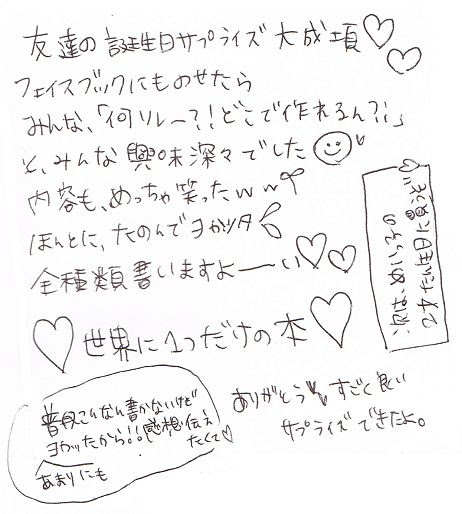 友達の誕生日サプライズ大成項♡♡
フェイスブックにものせたら
みんな、「何ソレー？！どこで作れるん？！」
と、みんな興味深々でした
内容も、めっちゃ笑ったｗｗ
ほんとに、たのんでヨカッタ
全種類書いますよーーい♡♡
♡世界に1つだけの本♡
次は、めいっ子の
2才たん生日に買うぞ♡
普段こんなん書かないけど
あまりにも
ヨカッたから！！感想伝え
たくて♡
ありがとう すごく良い
サプライズできたよ。